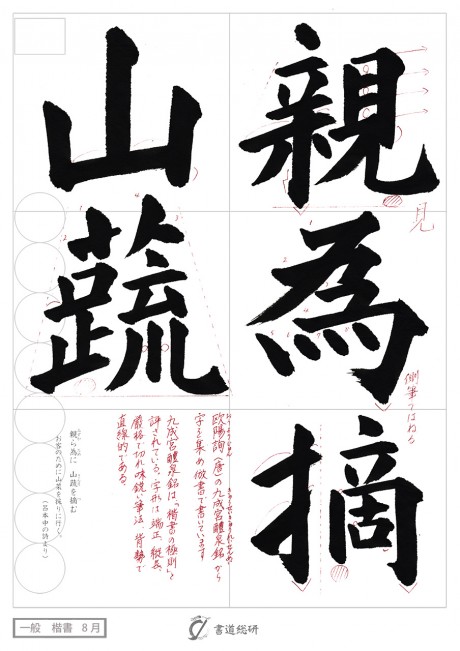 親為摘
山蔬
見
側筆ではねる
欧陽詢(唐)の九成宮醴泉銘から
字を集め倣書で書いています
九成宮醴泉銘は「楷書の極則」と
評されている。字形は端正、縦長、
厳格で切れ味鋭い筆法、背勢で
直線的である。
親ら為に 山蔬を摘む
お客のために山菜を採りに行く。
(呂本中の詩より)
一般 楷書 8月
書道総研